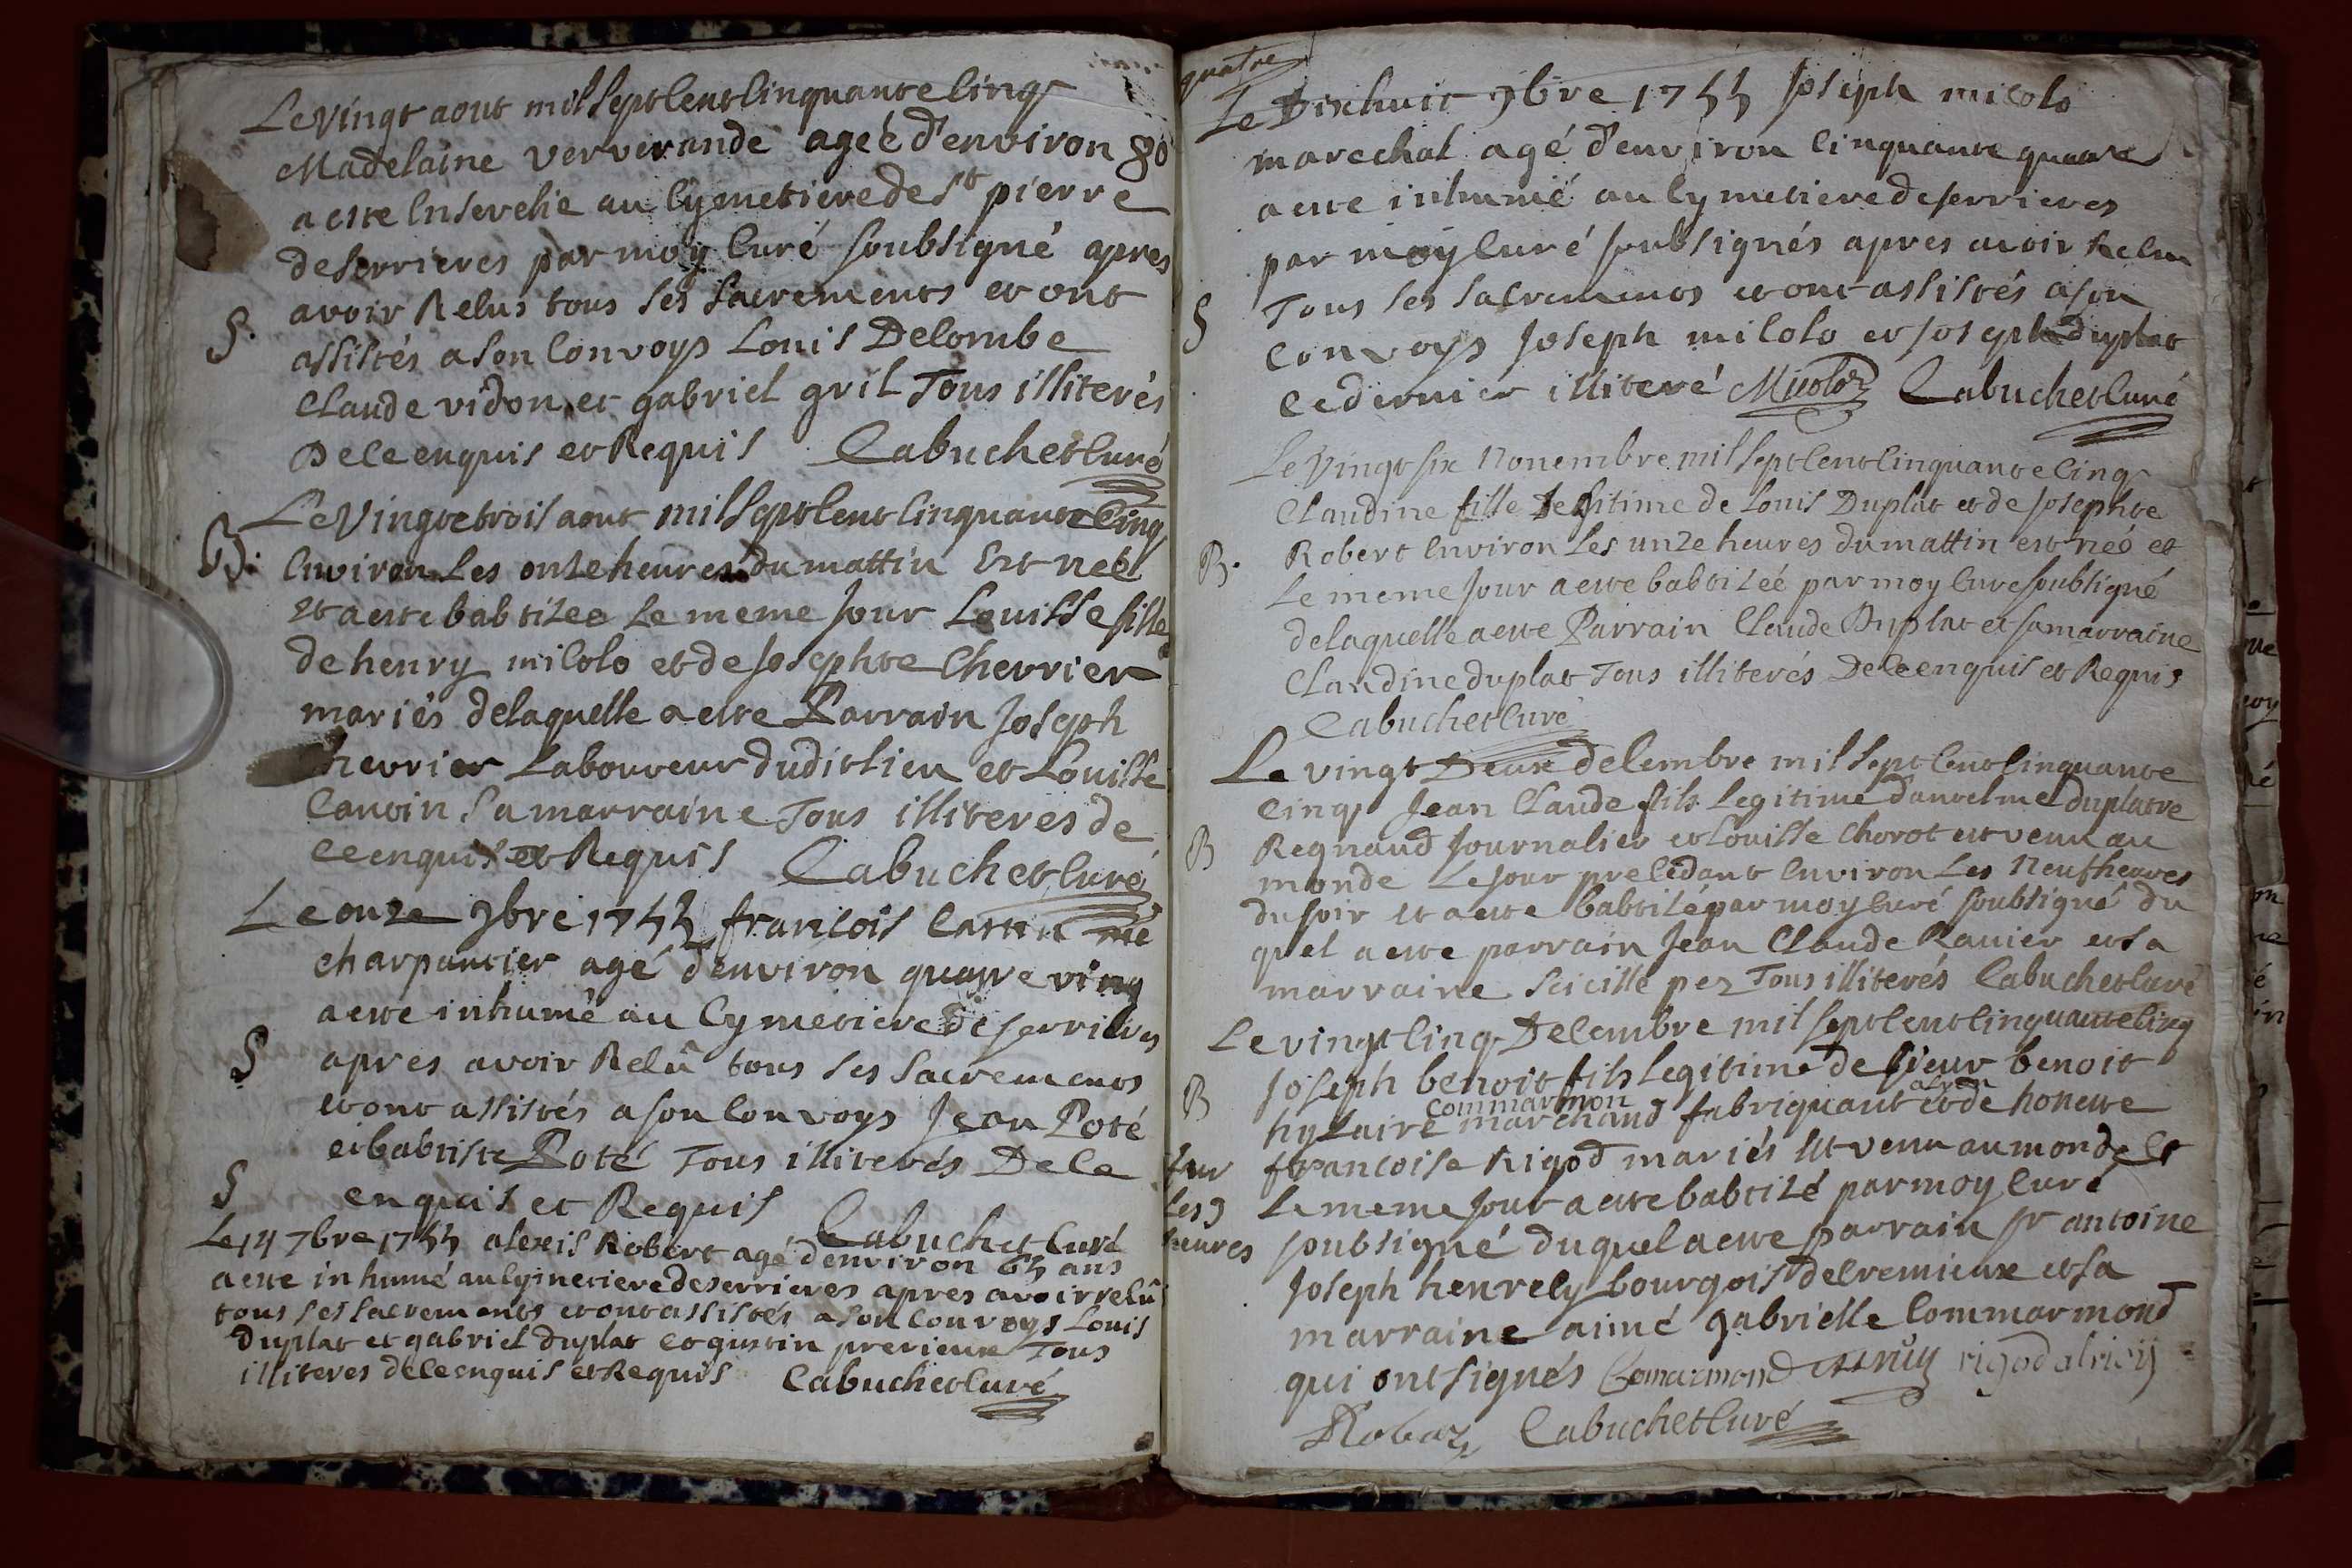 Le vingt aout mil sept cent cinquante cinq
Madelaine ververande ageé d'environ 80
a ette ensevelie au cymetiere de St pierre
de serrieres par moy curé soubsigné apres
avoir Recus tous ses sacrements et ont
S. assistés a son convoys Louis Delombe
Claude vidon et gabriel gril Tous illiterés
De ce enquis et Requis Cabuchet curé
Le Vingt et trois aout mil sept cent cinquante Cinq
B. environ Les onze heures du mattin est neé
et a ette babtizee Le meme Jour Louisse fille
de henry micolo et de Josephte Chevrier
mariés de laquelle a ette Parrain Joseph
Chevrier Laboureur dudit lieu et Louisse
Cantin sa marraine Tous illiteres de
ce enquis et Requis Cabuchet curé
Le onze 9bre 1755 francois
charpantier agé d'environ quatre ving
a ette inhumé au cymetiere de serrieres
S apres avoir Recû tous ses sacrements
et ont assistés a son convoys Jean Poté
et babtiste Poté Tous illiterés De ce
S enquis et Requis Cabuchet curé
Le 14 7bre 1755 alexis Robert agé d'environ 65 ans
a ette inhumé au cymetiere de serrieres apres avoir recûs
tous ses sacrements et ont assistés a son convoys Louis
Duplat et gabriel Duplat et gustin prerieux Tous
illiteres de ce enquis et Requis Cabuchet curé
quatre
Le Dixhuit 9bre 1755 Joseph micolo
marechal agé d'environ cinquante quatre
a ette inhumé au cymetiere de serrieres
par moy curé soubsignés apres avoir Recu
S Tous ses sacrements et ont assistés a son
convoys Joseph micolo et Joseph duplat
ce dernier illiteré Micoloz Cabuchet curé
Le Vingt six Nouembre mil sept cent cinquante cinq
Claudine fille Legitime de Louis Duplat et de Josephte
B. Robert environ Les unze heures du mattin est neé et
Le meme Jour a ette babtizeé par moy cure soubsigné
de laquelle a ette Parrain Claude Duplat et sa marraine
Claudine duplat Tous illiterés De ce enquis et Requis
Cabuchet curé
Le vingt Deux decembre mil sept cent cinquante
cinq Jean Claude fils Legitime d'antelme duplatre
B Regnaud Journalier et Louisse Chorot est venu au
monde Le Jour precedant environ Les Neuf heures
du soir et a ette babtizé par moy curé soubsigné du
quel a ette parrain Jean Claude Ravier et sa
marraine Scicille pez Tous illiterés Cabuchet curé
Le vingt cinq Decembre mil sept cent cinquante cinq
Joseph benoit fils Legitime de sieur benoit
B hylaire commarmon marchand fabriquant et de honette
francoise Rigod mariés est venu au monde et
sur les 9 heures
Le meme Jour a ette babtizé par moy curé
soubsigné du quel a ette parrain sr antoine
Joseph henrecy bourgois de cremieux et sa
marraine aimé gabrielle Commarmond
qui ont signés Comarmond rigod
Cabuchet curé